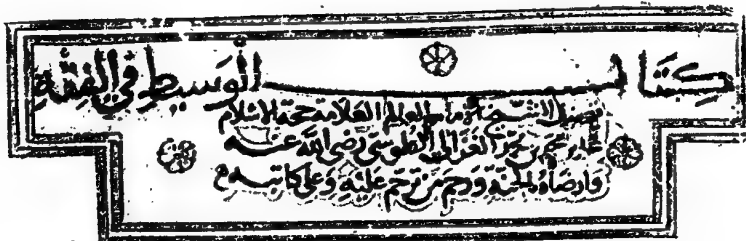 كتاب الوسيط في الفقه
تصنيف الشيخ الامام العالم العلامة حجة الاسلام
محمد بن محمد الغزالي الطوسي رضي الله عنه
وارضاه بالجنة ورحم من ترحم عليه وعلى كاتبه